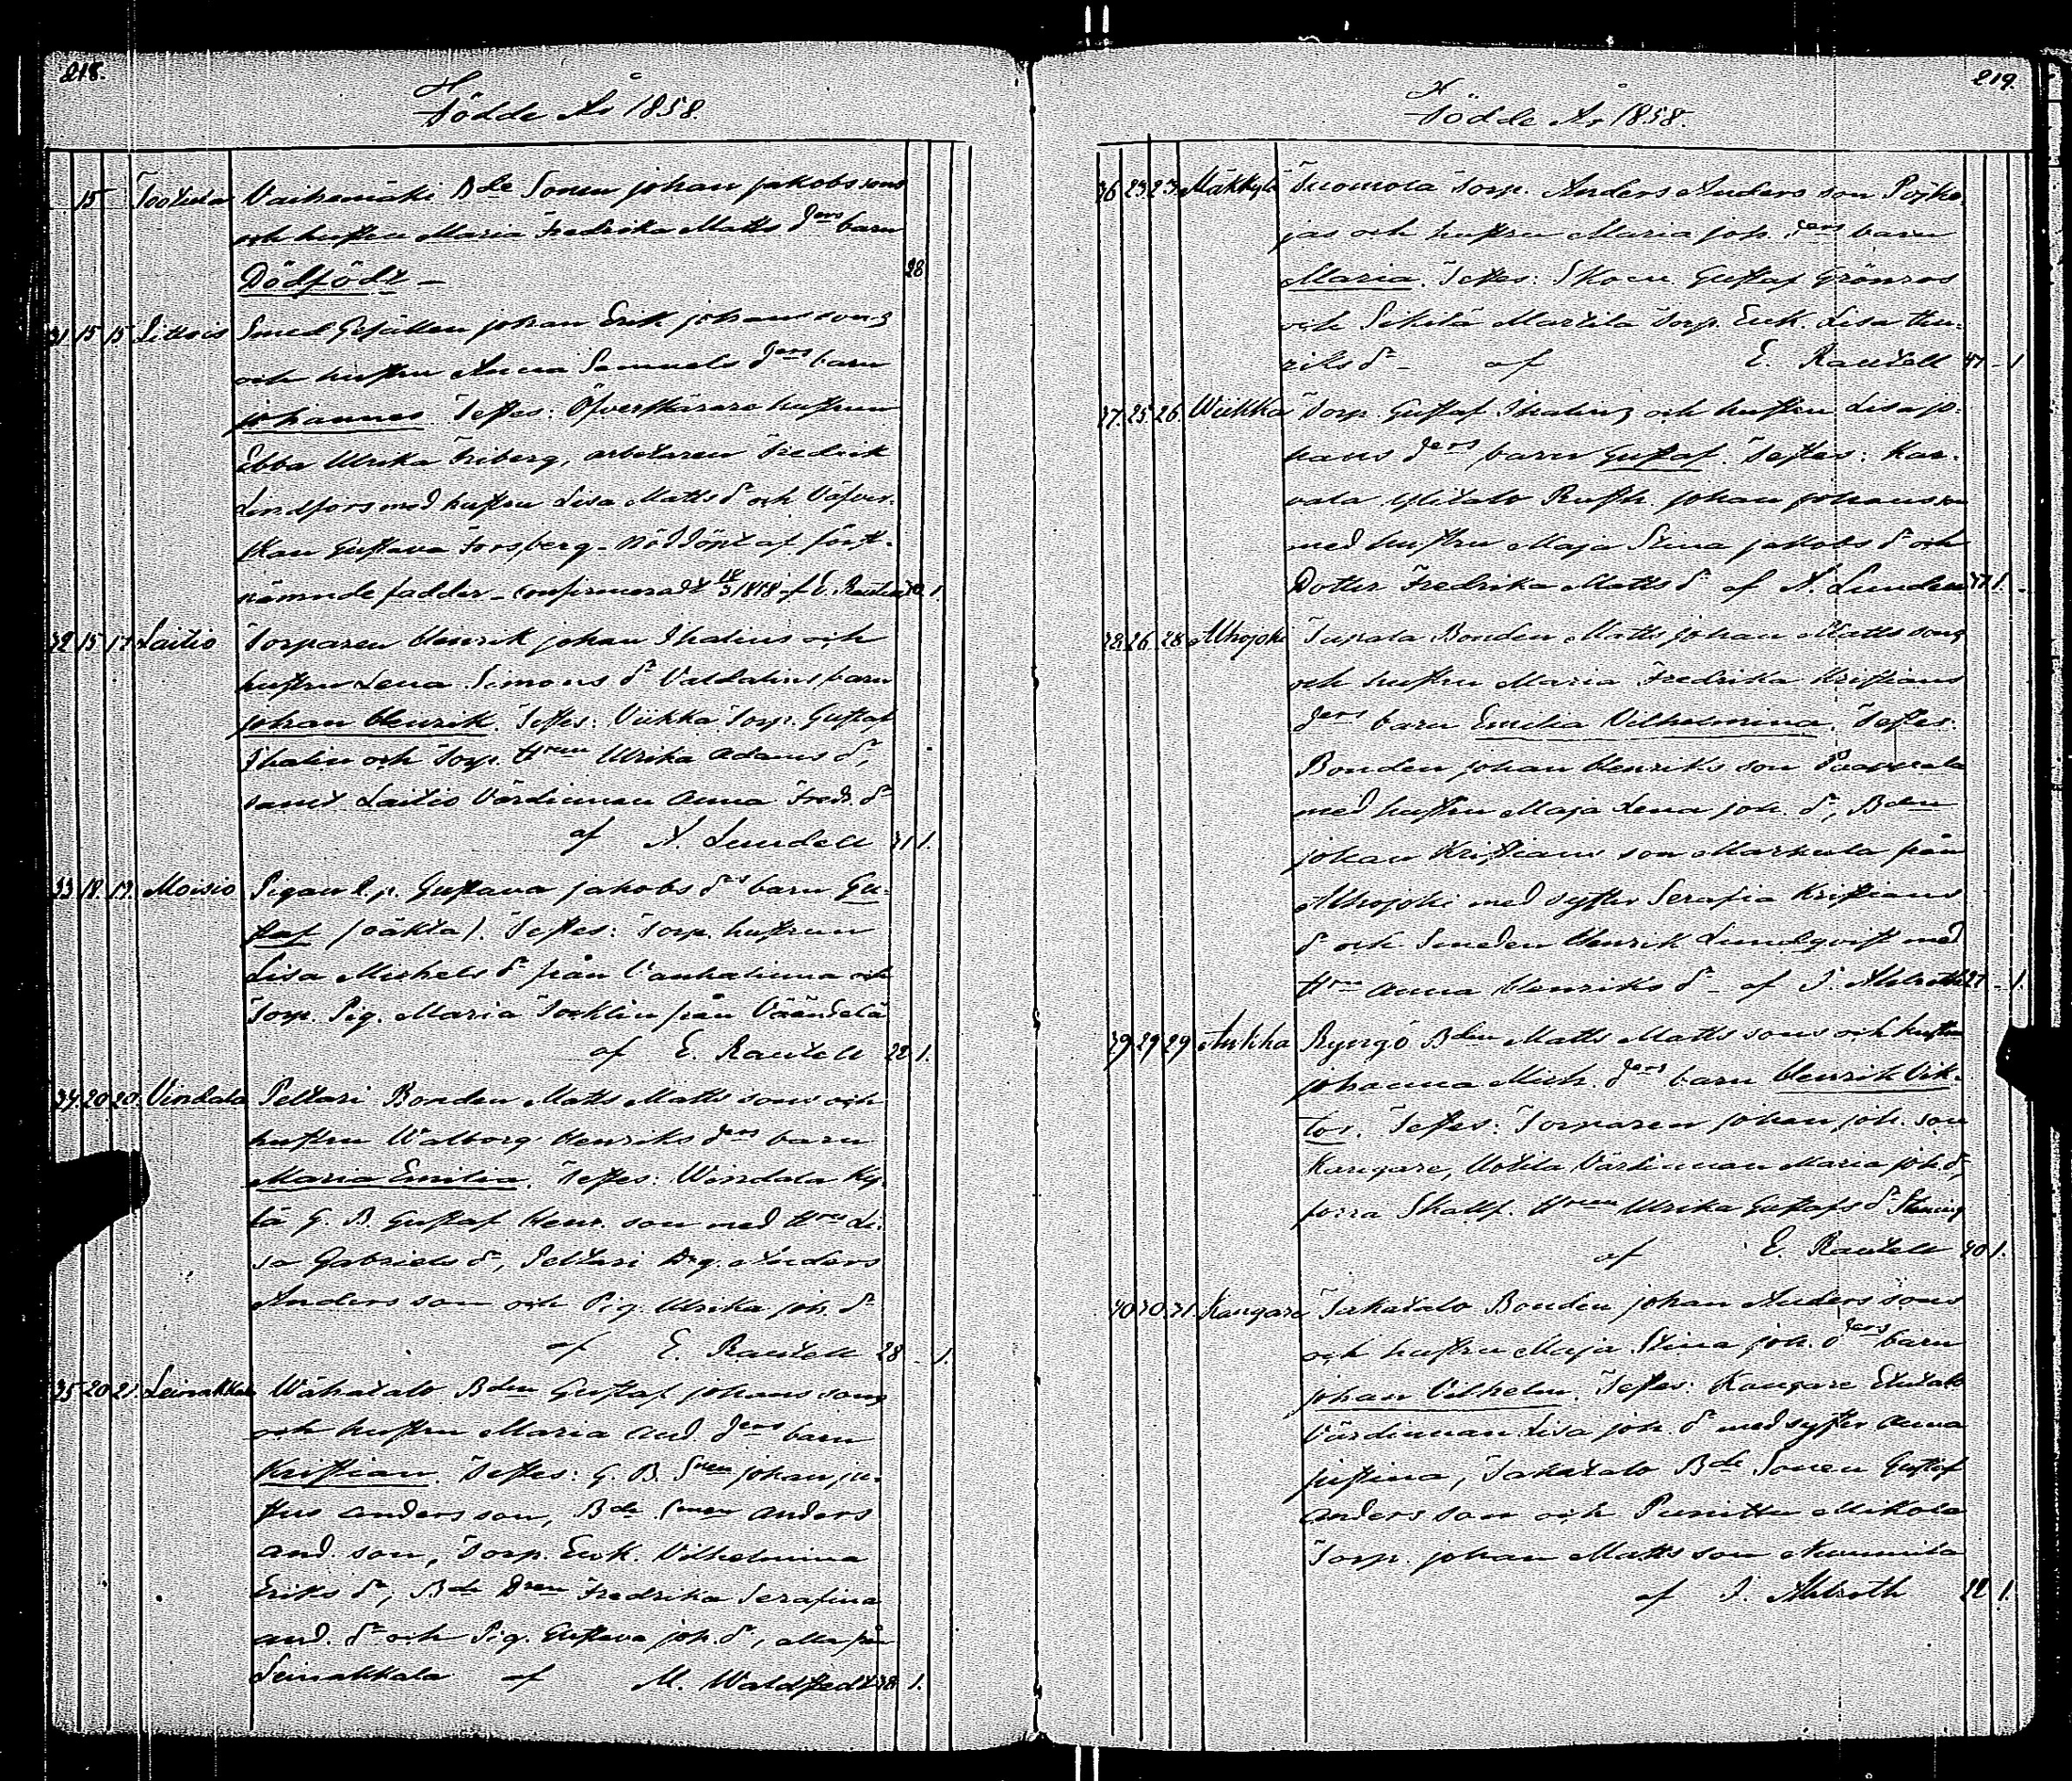 218.
Födde År 1858.
15 Tootula Vaihemäki Bde Sonen Johan Jakobssons
och hustru Maria Fredrika Matts ders barn
Dödfödt – 28
31 15 15 Littois Smed Gesällen Johan Erik Johanssons
och hustru Anna Samuels ders barn
Johannes Testes: Öfverskärare hustrun
Ebba Ulrika Friberg, arbetaren Fredrik
Lindfors med hustru Lisa Matts dr och Väfver-
skan Gustava Forsberg – Nöddöpt af först-
nämnde fadder – confirmeradt af E. Rautell 1.
32 15 17 Laitio Torparen Henrik Johan Thalins och
hustru Lena Simons dr Valdalins barn
Johan Henrik. Testes: Viikka Torp. Gustaf
Thalin och Torp. Hrun Ulrika Adams dr,
samt Laitio Värdinnan Anna Fredr. dr
af A. Lundell 31 1.
33 18. 19. Moisio Pigan l. p. Gustava Jakobs drs barn Gu-
staf (oäkta). Testes: Torp. hustrun
Lisa Michels dr från Vanhalinna och
Torp. Pig. Maria Tocklin från Väändelä
af E. Rautell 22 1.
34 20 20. Vindala Peltari Bonden Matts Matts sons och
hustru Walborg Henriks ders barn
Maria Emilia. Testes: Windala Ky-
lä G. B. Gustaf Henr. son med Hru Li-
sa Gabriels dr, Peltari Drg. Anders
Anders son och Pig. Ulrika Joh. dr
af E. Rautell 28 – 1.
35 20 21. Leinakkala Wähätalo Bden Gustaf Johans sons
och hustru Maria And. ders barn
Kristian. Testes: G. B. Snen Johan Ju-
stus Anders son, Bde Snen Anders
And. son, Torp. Enk. Vilhelmina
Eriks dr, Bde Dren Fredrika Serafina
And. dr och Pig. Gustava Joh. dr, alla från
Leinakkala af M. Waldstedt 38 1.
219.
Födde År 1858.
36 23 23 Mäkkylä Tuomola Torp. Anders Anders son Pojke-
jas och hustru Maria Joh. ders barn
Maria. Testes: Skom. Gustaf Grönros
och Sikilä Martila Torp. Enk. Lisa Hen-
riks dr – af E. Rautell 41 – 1
37. 25. 26. Wiikka Torp. Gustaf Thalins och hustru Lisa Jo-
hans ders barn Gustaf. Testes: Kar-
vala Ylitalo Rusth. Johan Johansson
med hustru Maja Stina Jakobs dr och
Dotter Fredrika Matts dr af A. Lundell 1.
38. 26. 28 Alhojoki Tupala Bonden Matts Johan Matts sons
och hustru Maria Fredrika Kristians
ders barn Emilia Vilhelmina. Testes:
Bonden Johan Henriks son Paavola
med hustru Maja Lena Joh. dr, Bden
Johan Kristians son Markula från
Alhojoki med syster Serafia Kristians
dr och Smeden Henrik Lundqvist med
Hru Anna Henriks dr – af J. Ahlroth 27 – 1.
39 29 29 Aukha Ryngö Bden Matts Matts sons och hustru
Johanna Mich. ders barn Henrik Vik-
tor. Testes: Torparen Johan Joh. son
Kangare, Uotila Värdinnan Maria Joh dr,
förra Skallf. Hrun Ulrika Gustafs dr
af E. Rautell 40 1.
40 30. 31. Kangare Takatalo Bonden Johan Anders sons
och hustru Maja Stina Joh. ders barn
Johan Vilhelm. Testes: Kangare Etutalo
Värdinnan Lisa Joh. dr med syster Anna
Justina, Takatalo Bde Sonen Gustaf
Anders son och Punittu Mikola
Torp. Johan Matts son Nummila
af J. Ahlroth 22 1.